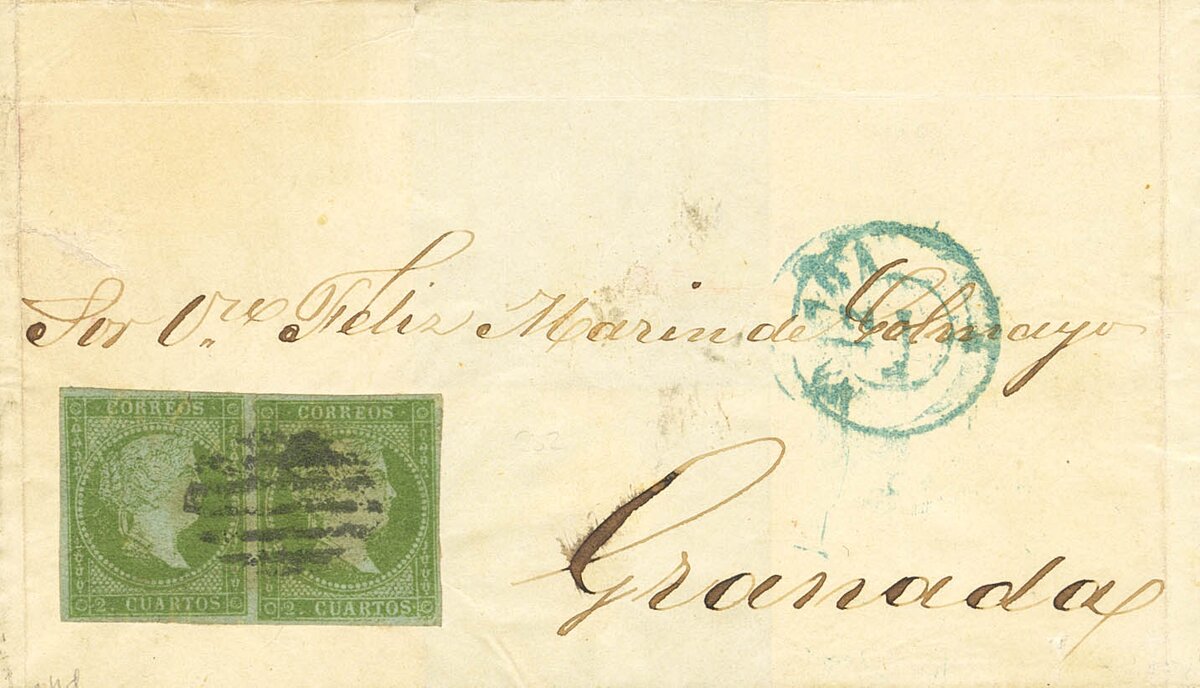 Sor Dn. Feliz Marin de Colmayo
CORREOS CORREOS
2. CUARTOS 2. CUARTOS
Granada